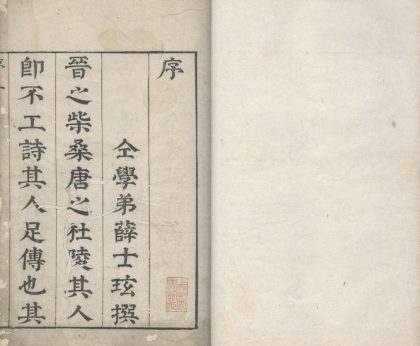 序
仝學弟薛士玹撰
晉之柴桑唐之杜陵其人
卽不工詩其人足傳也其
序